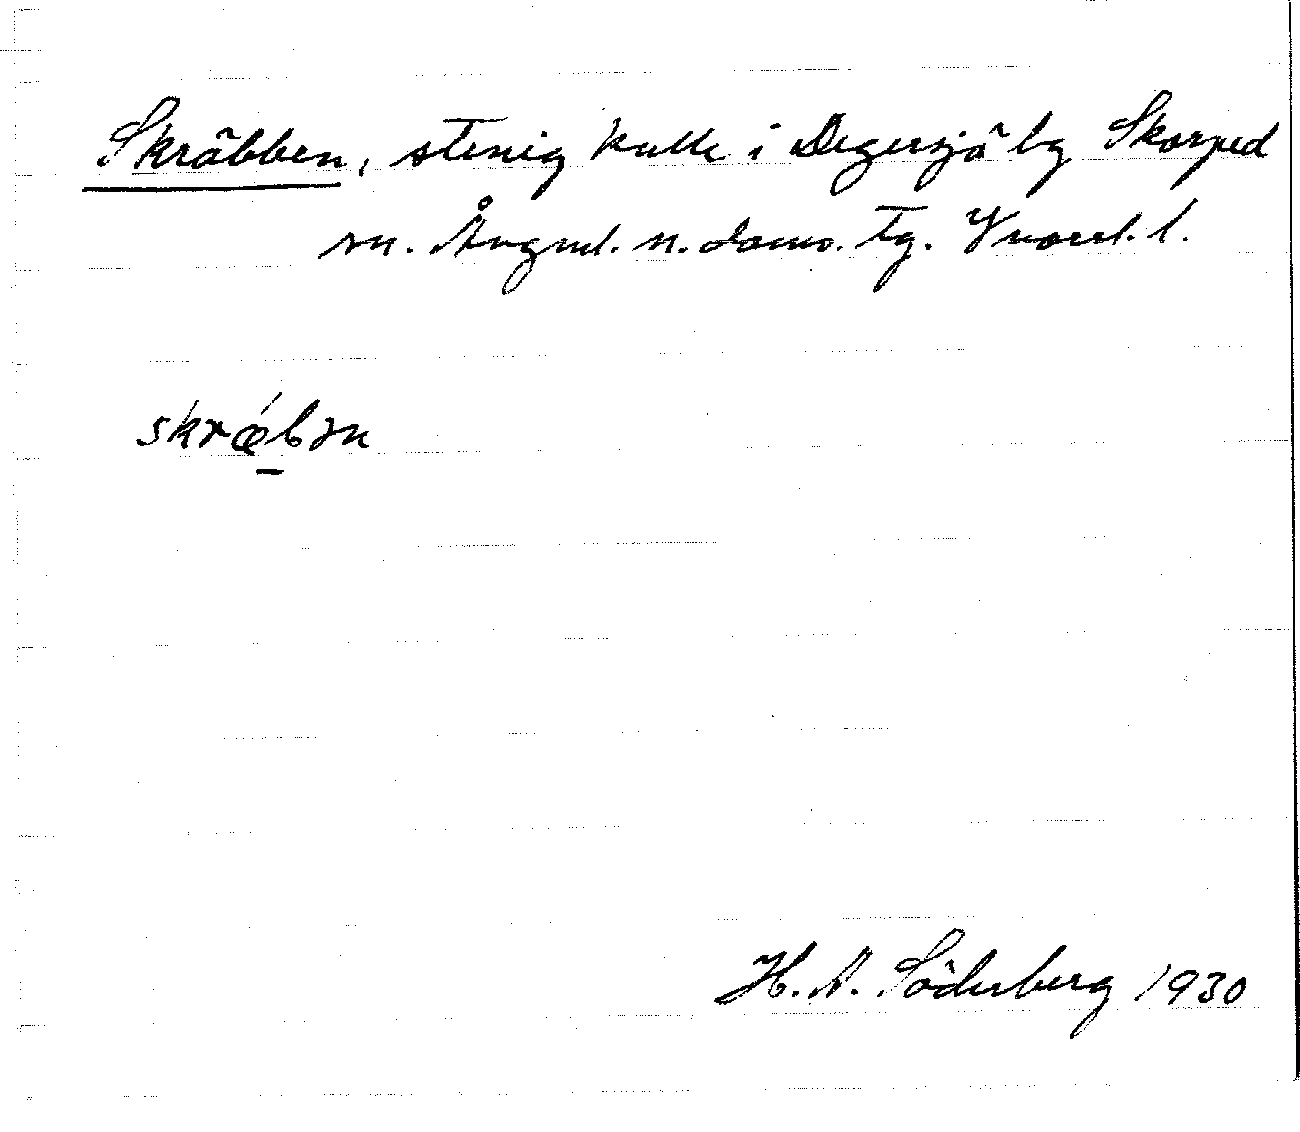 Skräbben, stenig kulle i Degersjö by Skorped
sn. Ångml. n. doms. tg. Vnorrl. l.
skrǽbm
H. A. Söderberg 1930